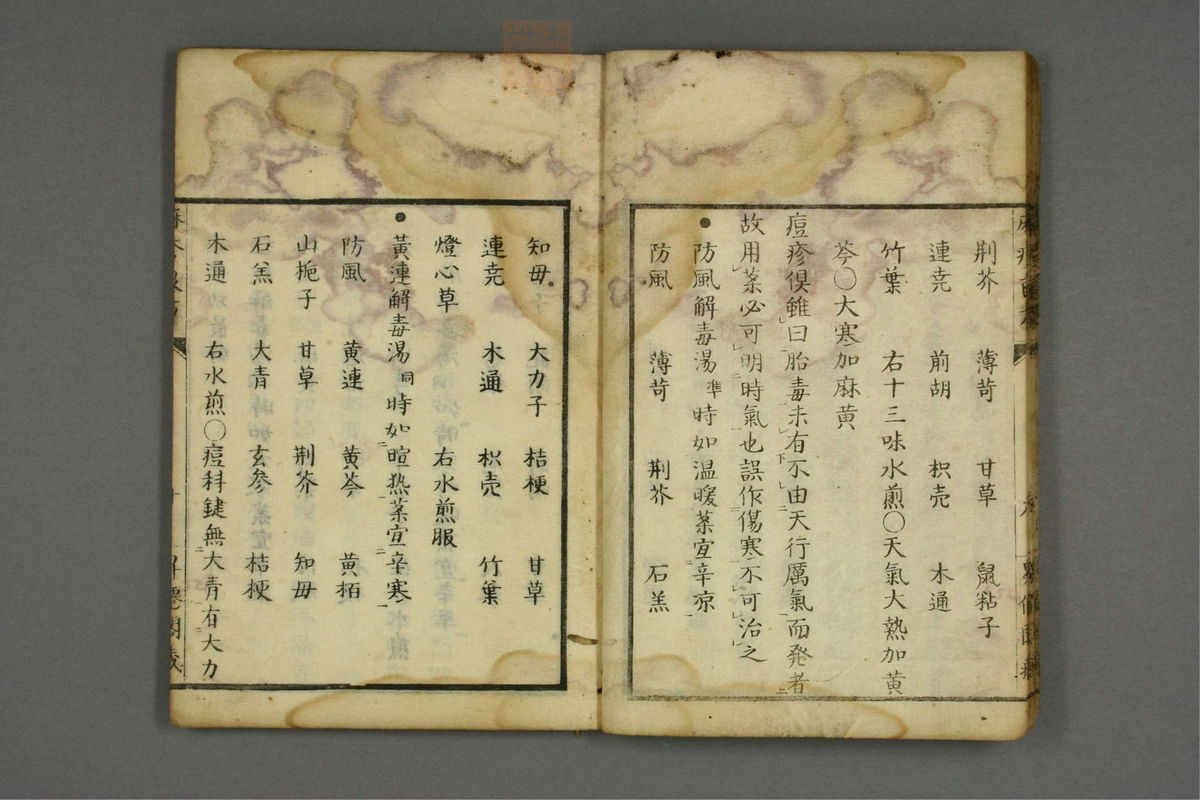 荆芥　薄苛　甘草　鼠粘子
連壳　前胡　枳売　木通
竹葉　右十三味水煎〇天氣大熱加黄
芩〇大寒加麻黄
痘疹倶雖曰胎毒未有不由天行厲氣而発者
故用薬必可明時氣也誤作傷寒不可治之
●防風解毒湯準時如温暖薬宜辛凉
防風　薄苛　荆芥　石羔
知毋　大力子　桔梗　甘草
連壳　木通　枳売　竹葉
燈心草　右水煎服
●黄連解毒湯同時如暄热薬宜辛寒
防風　黄連　黄芩　黄栢
山梔子　甘草　荆芥　知毋
石羔　大青　玄参　桔梗
木通　右水煎〇痘科鍵無大青有大力